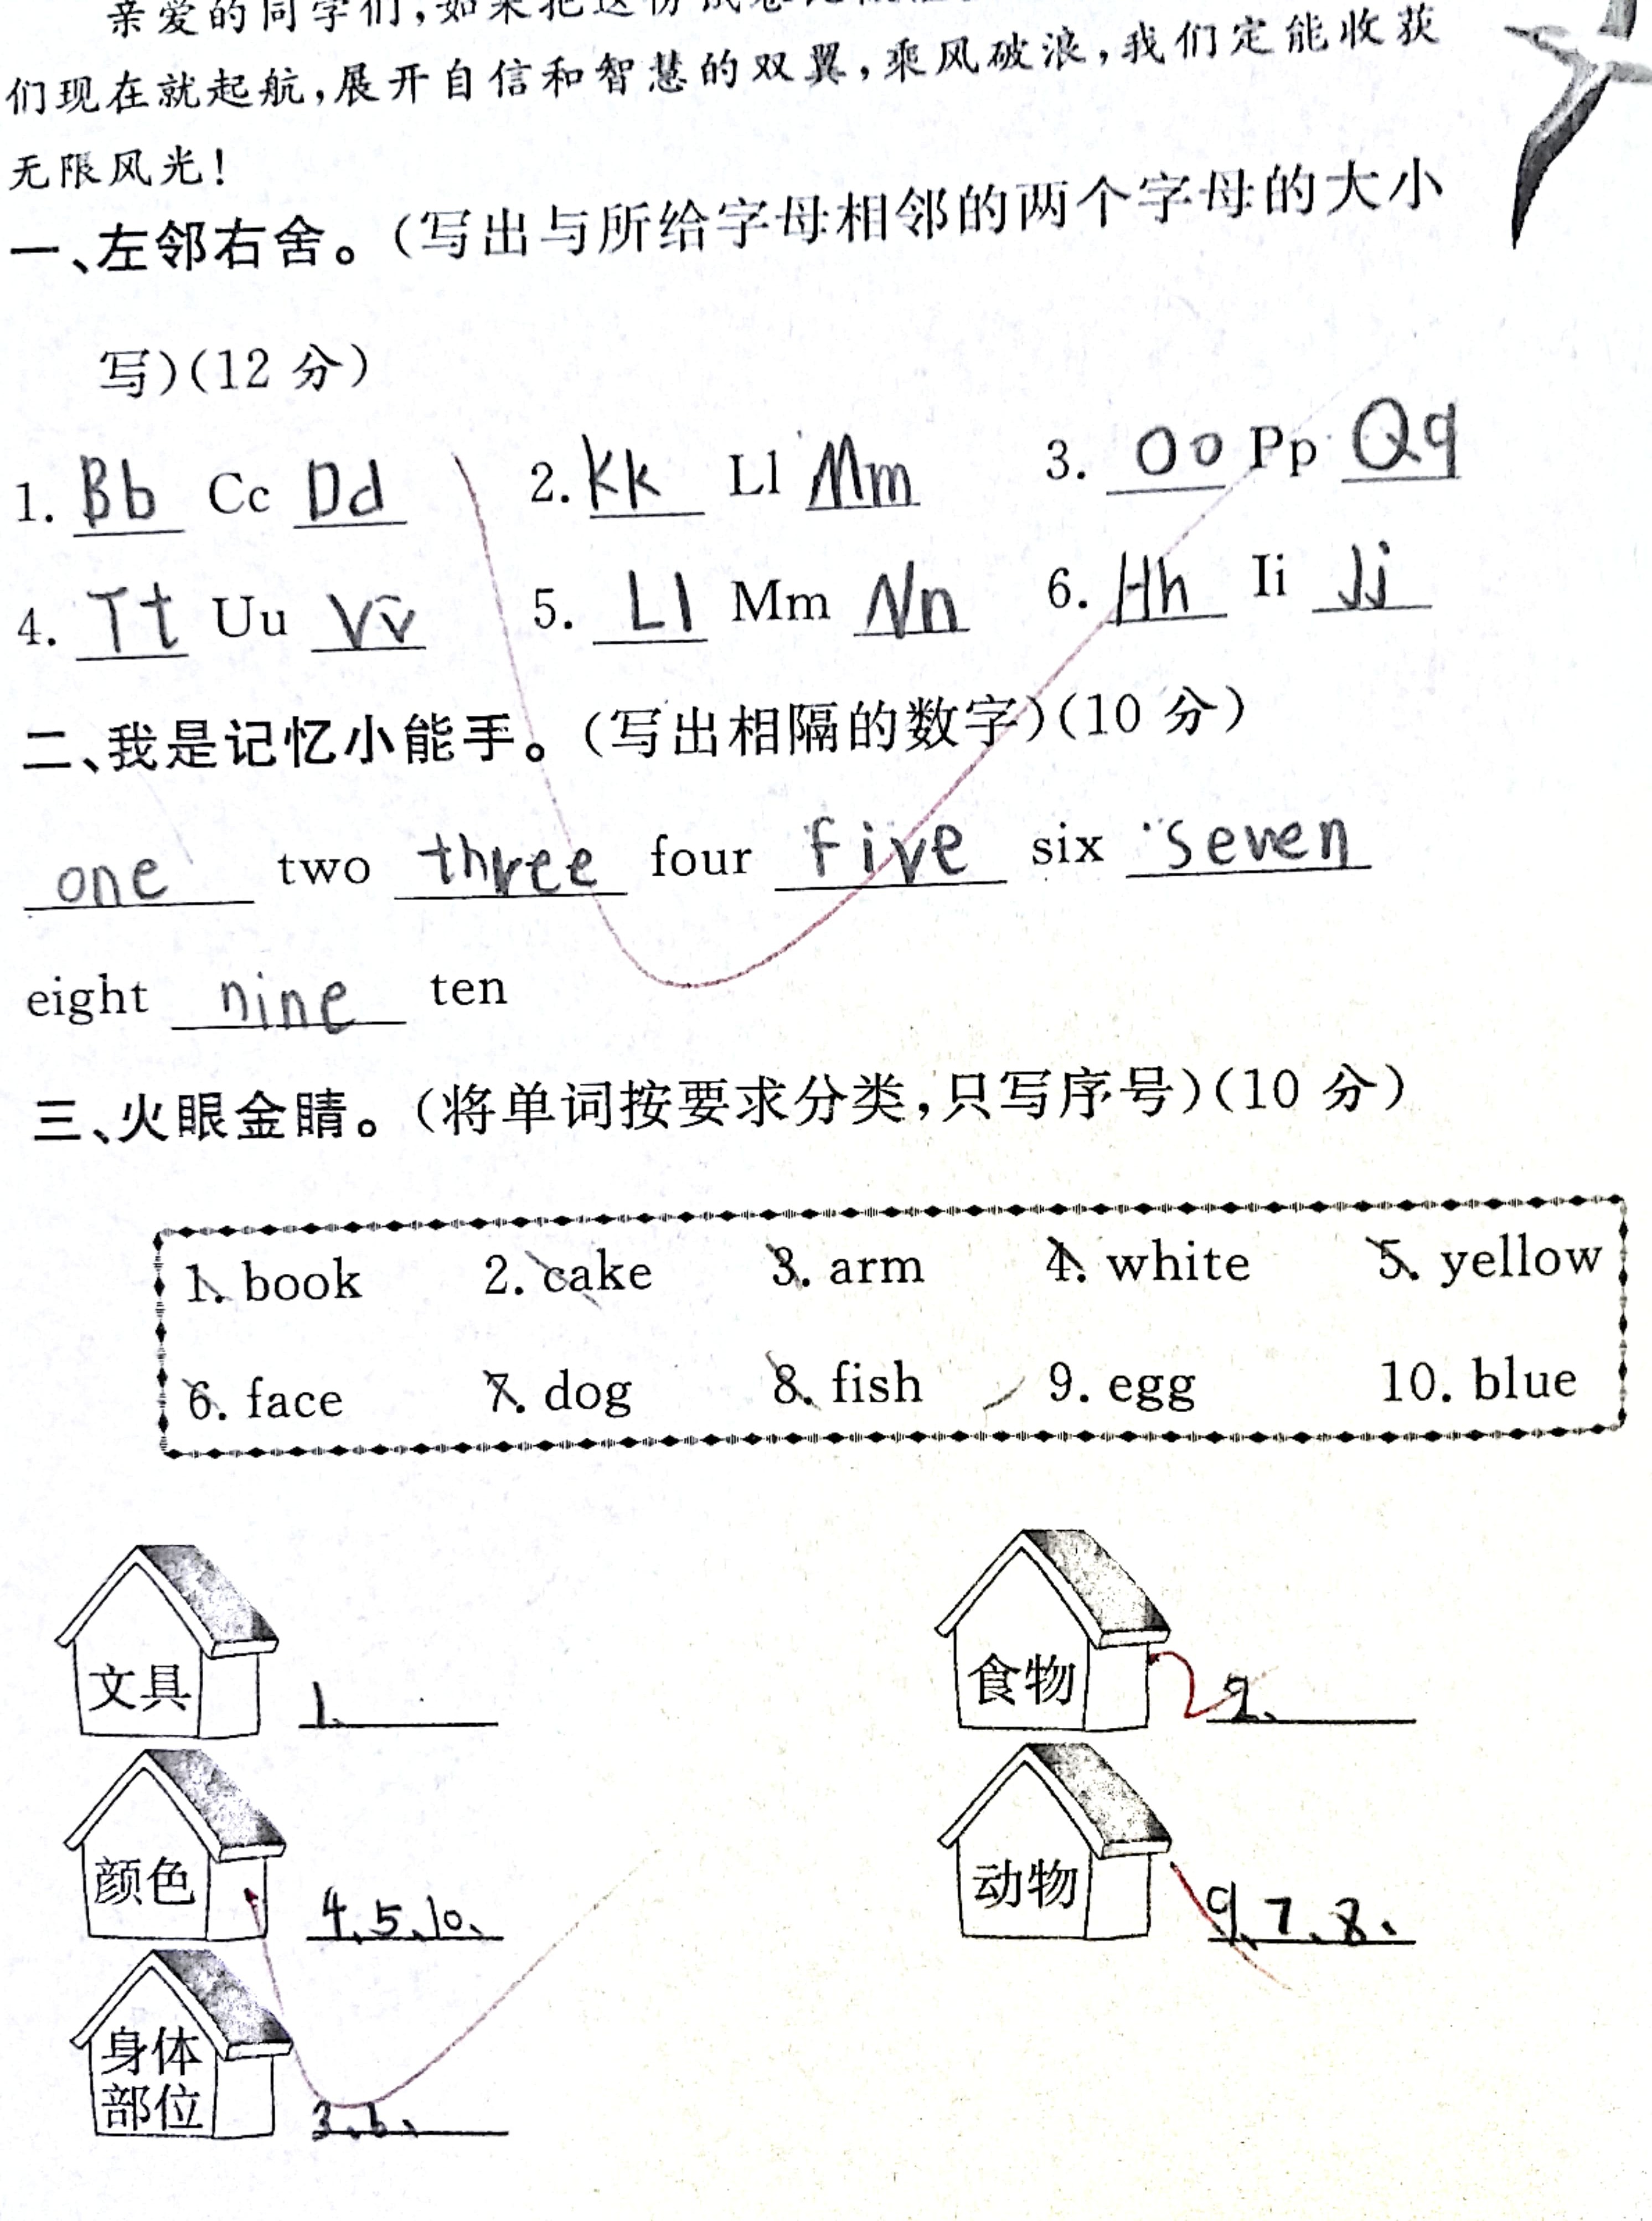 亲爱的同学们,如果把这份试卷
们现在就起航,展开自信和智慧的双翼,乘风破浪,我们定能收获
无限风光!
一、左邻右舍。(写出与所给字母相邻的两个字母的大小
写)(12 分)
1. Bb Cc Dd 2. Kk Ll Mm 3. Oo Pp Qq
4. Tt Uu Vv 5. Ll Mm Nn 6. Hh Ii Jj
二、我是记忆小能手。(写出相隔的数字)(10 分)
one two three four five six seven
eight nine ten
三、火眼金睛。(将单词按要求分类,只写序号)(10 分)
1. book 2. cake 3. arm 4. white 5. yellow
6. face 7. dog 8. fish 9. egg 10. blue
文具 1、 食物 2、
颜色 4、5、10、 动物 9、7、8、
身体
部位 3、6、